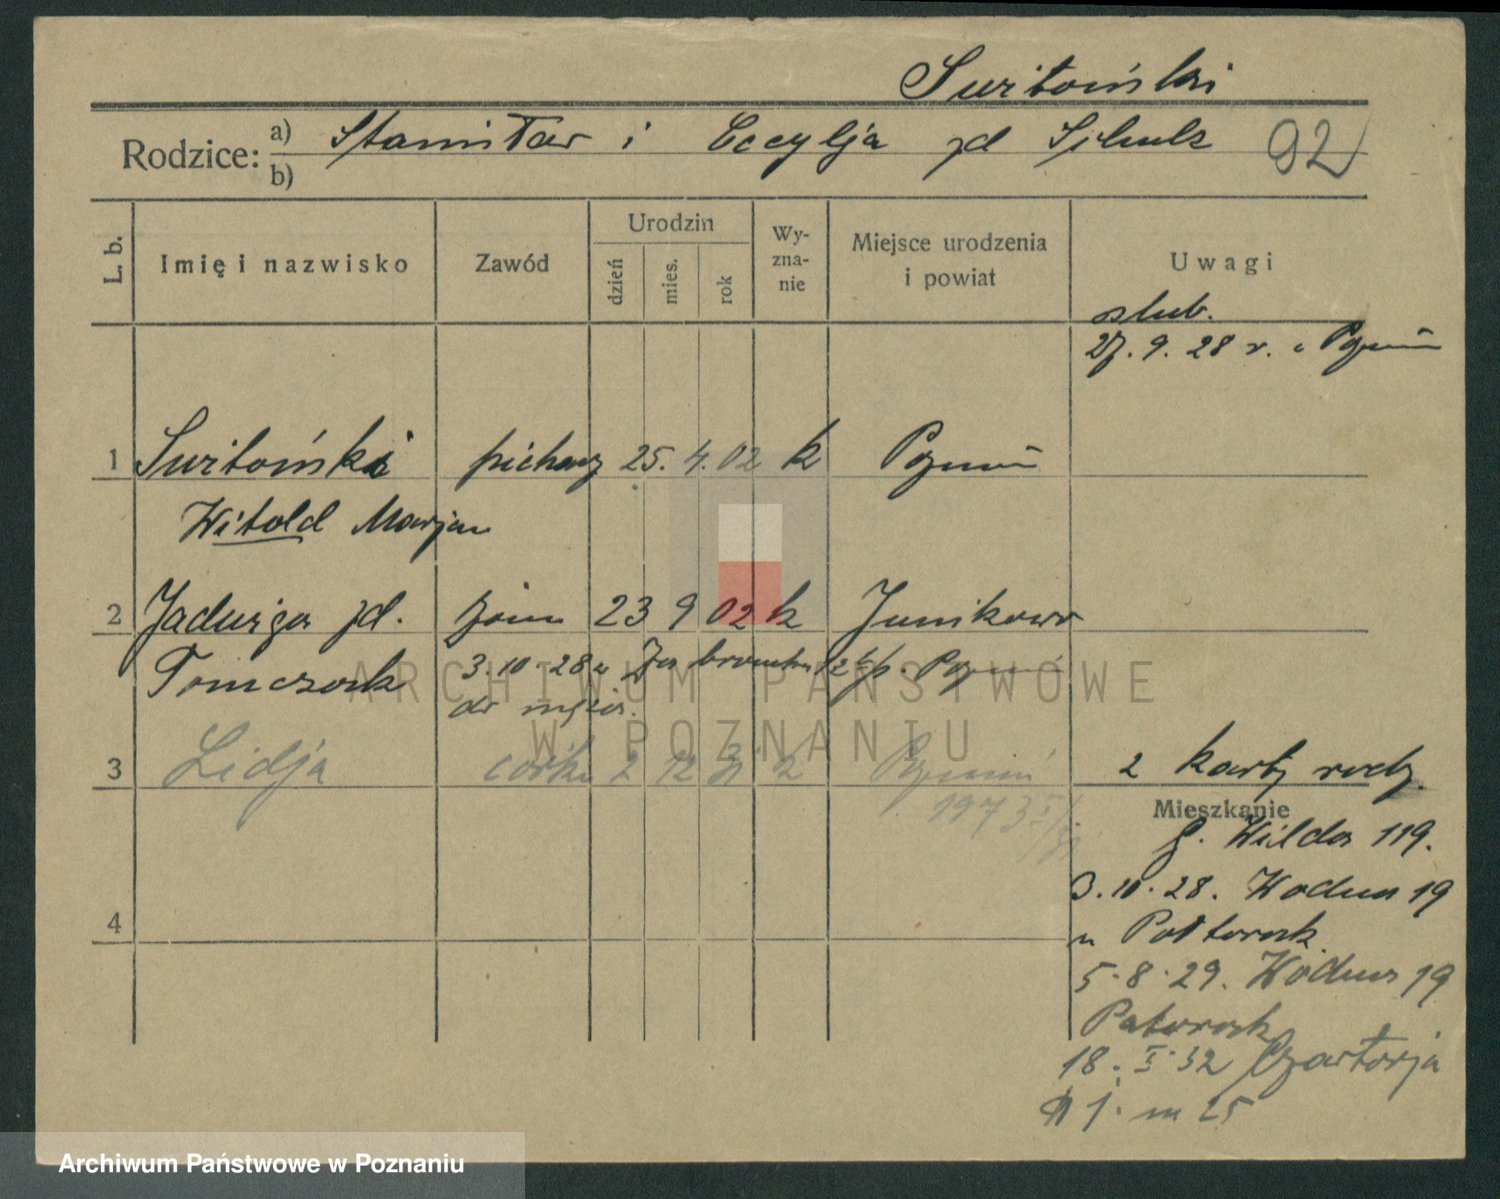 Suitoński
Rodzice: a) Stanisław i Cecylja zd Schulz 92
b)
L. b. Imię i nazwisko Zawód Urodzin dzień mies. rok Wy-zna-nie Miejsce urodzenia i powiat Uwagi
slub.
27. 9. 28 r. w Poznań
1 Suitoński piekarz 25. 4. 02 k Poznań
Witold Marjan
2 Jadwiga zd. żona 23 9 02 k Junikowo
Tomczak 3.10.28 z
do męża.
3 Lidja córka 2 12 31 k Poznań
2 karty rodz.
Mieszkanie
G. Wilda 119.
3.10.28. Wodna 19
u Półtorak
4
5.8.29. Wodna 19
Patorak
18. I. 32 Czartorja
1. m 25
ARCHIWUM PAŃSTWOWE
W POZNANIU
Archiwum Państwowe w Poznaniu